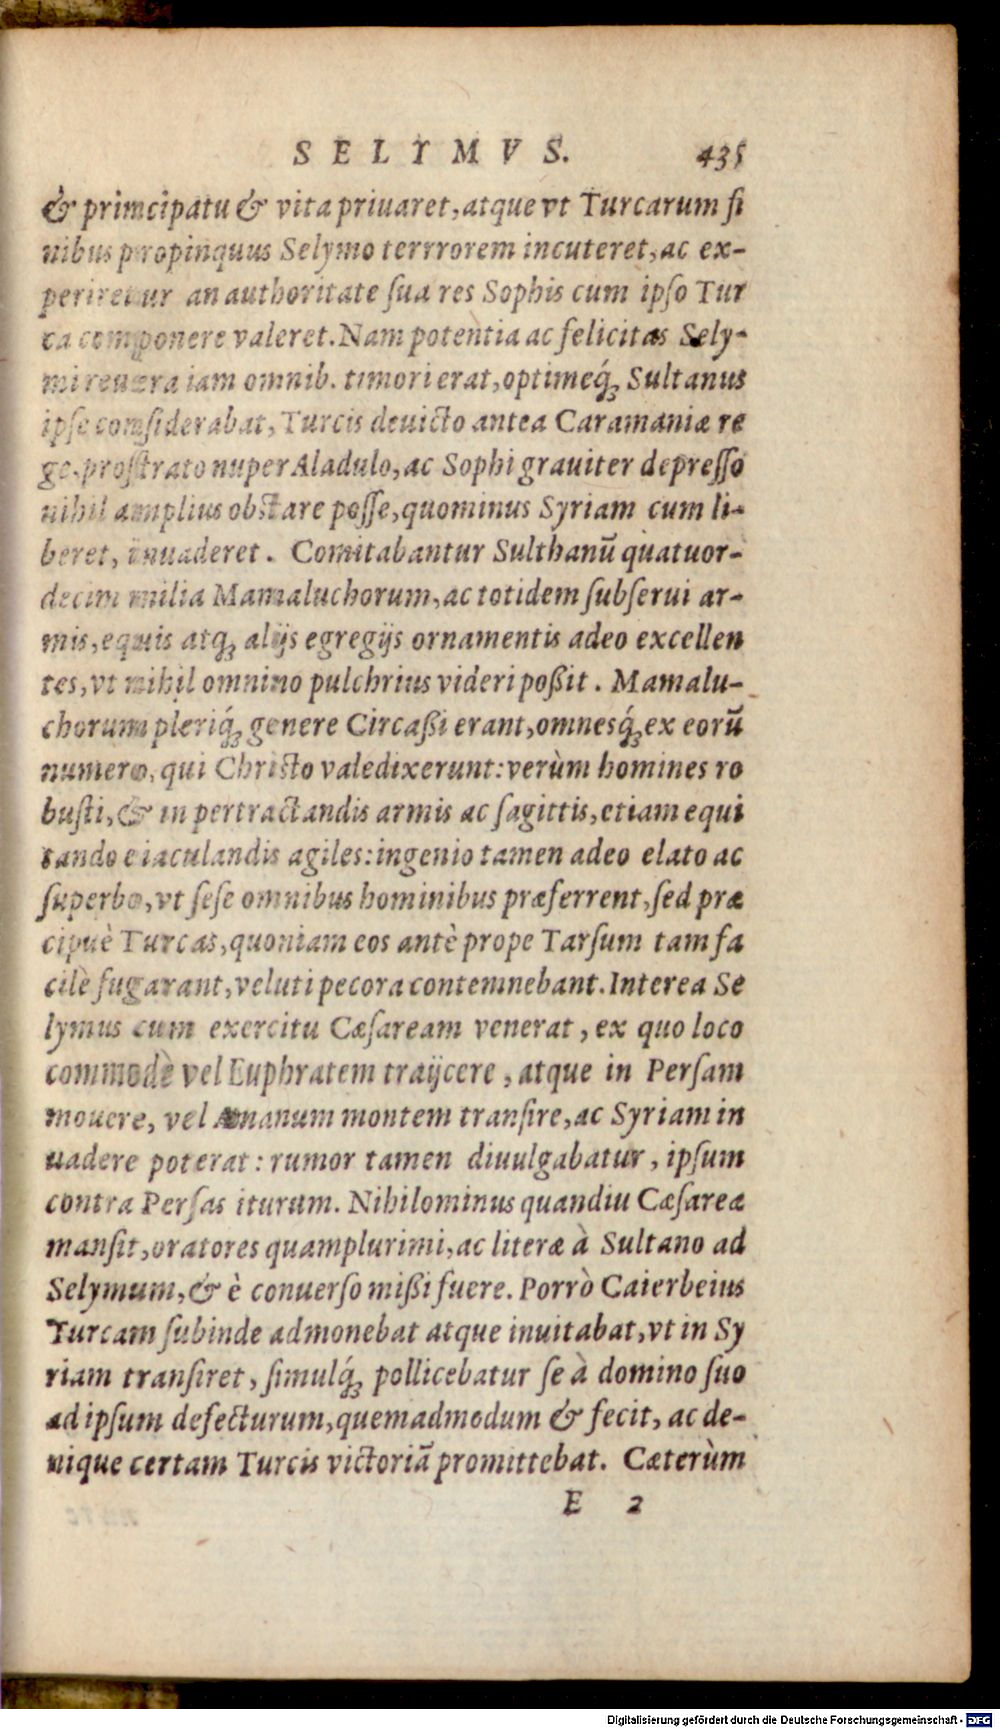 SELYMVS. 435
& principatu & vita priuaret, atque vt Turcarum fi
nibus propinquus Selymo terrrorem incuteret, ac ex-
periretur an authoritate ſua res Sophis cum ipſo Tur
ca componere valeret. Nam potentia ac felicitas Sely-
mi reuera iam omnib. timori erat, optimeq́ꝫ Sultanus
ipſe conſiderabat, Turcis deuicto antea Caramaniæ re
ge, proſtrato nuper Aladulo, ac Sophi grauiter depreſſo
nihil amplius obſtare poſſe, quominus Syriam cum li-
beret, inuaderet. Comitabantur Sulthanū quatuor-
decim milia Mamaluchorum, ac totidem ſubſerui ar-
mis, equis atqꝫ alijs egregijs ornamentis adeo excellen
tes, vt nihil omnino pulchrius videri poßit. Mamalu-
chorum pleriq́ꝫ genere Circaßi erant, omnesq́ꝫ ex eorū
numero, qui Chriſto valedixerunt: verùm homines ro
buſti, & in pertractandis armis ac ſagittis, etiam equi
tando eiaculandis agiles: ingenio tamen adeo elato ac
ſuperbo, vt ſeſe omnibus hominibus præferrent, ſed præ
cipuè Turcas, quoniam eos antè prope Tarſum tam fa
cilè fugarant, veluti pecora contemnebant. Interea Se
lymus cum exercitu Cæſaream venerat, ex quo loco
commodè vel Euphratem traijcere, atque in Perſam
mouere, vel Amanum montem tranſire, ac Syriam in
uadere poterat: rumor tamen diuulgabatur, ipſum
contra Perſas iturum. Nihilominus quandiu Cæſareæ
manſit, oratores quamplurimi, ac literæ à Sultano ad
Selymum, & è conuerſo mißi fuere. Porrò Caierbeius
Turcam ſubinde admonebat atque inuitabat, vt in Sy
riam tranſiret, ſimulq́ꝫ pollicebatur ſe à domino ſuo
ad ipſum defecturum, quemadmodum & fecit, ac de-
nique certam Turcis victoriā promittebat. Cæterùm
E 2
Digitalisierung gefördert durch die Deutsche Forschungsgemeinschaft - DFG